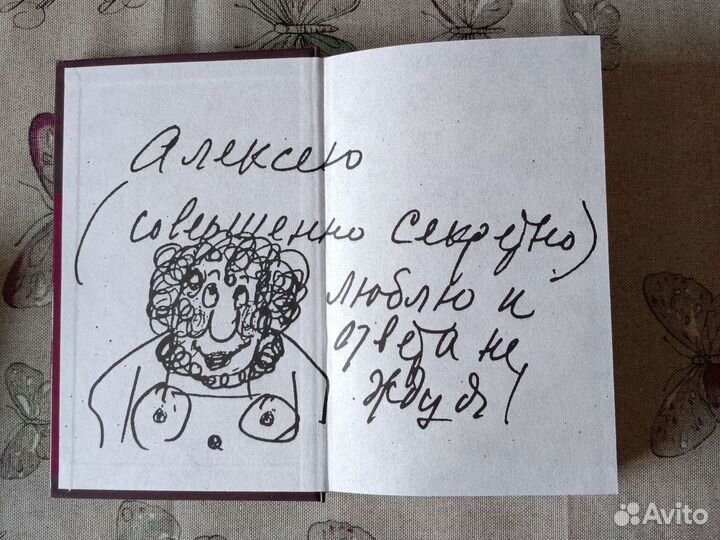 Алексею
(совершенно секретно)
люблю и
ответа не
жду я!
Avito